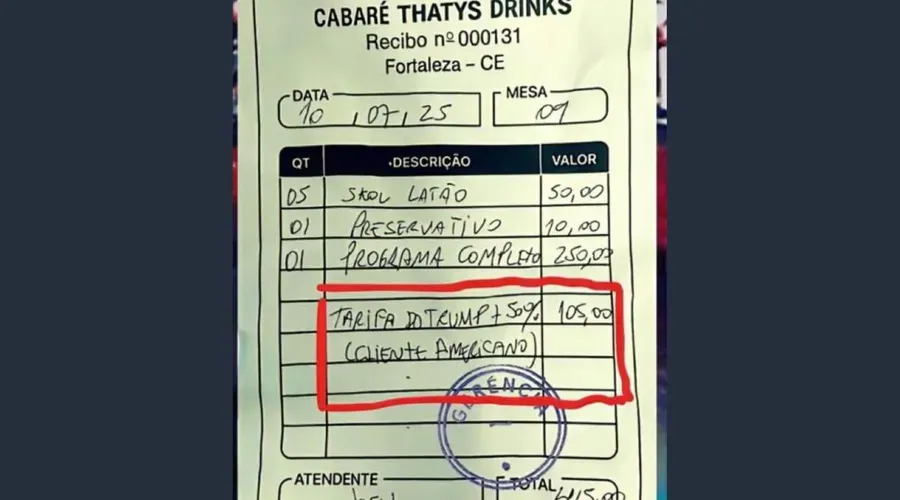 CABARÉ THATYS DRINKS
Recibo nº 000131
Fortaleza – CE
DATA
10, 07, 25
MESA
09
QT DESCRIÇÃO VALOR
05 SKOL LATÃO 50,00
01 PRESERVATIVO 10,00
01 PROGRAMA COMPLETO 250,00
TARIFA DO TRUMP + 50% 105,00
(CLIENTE AMERICANO)
GERÊNCIA
ATENDENTE
TOTAL
415,00